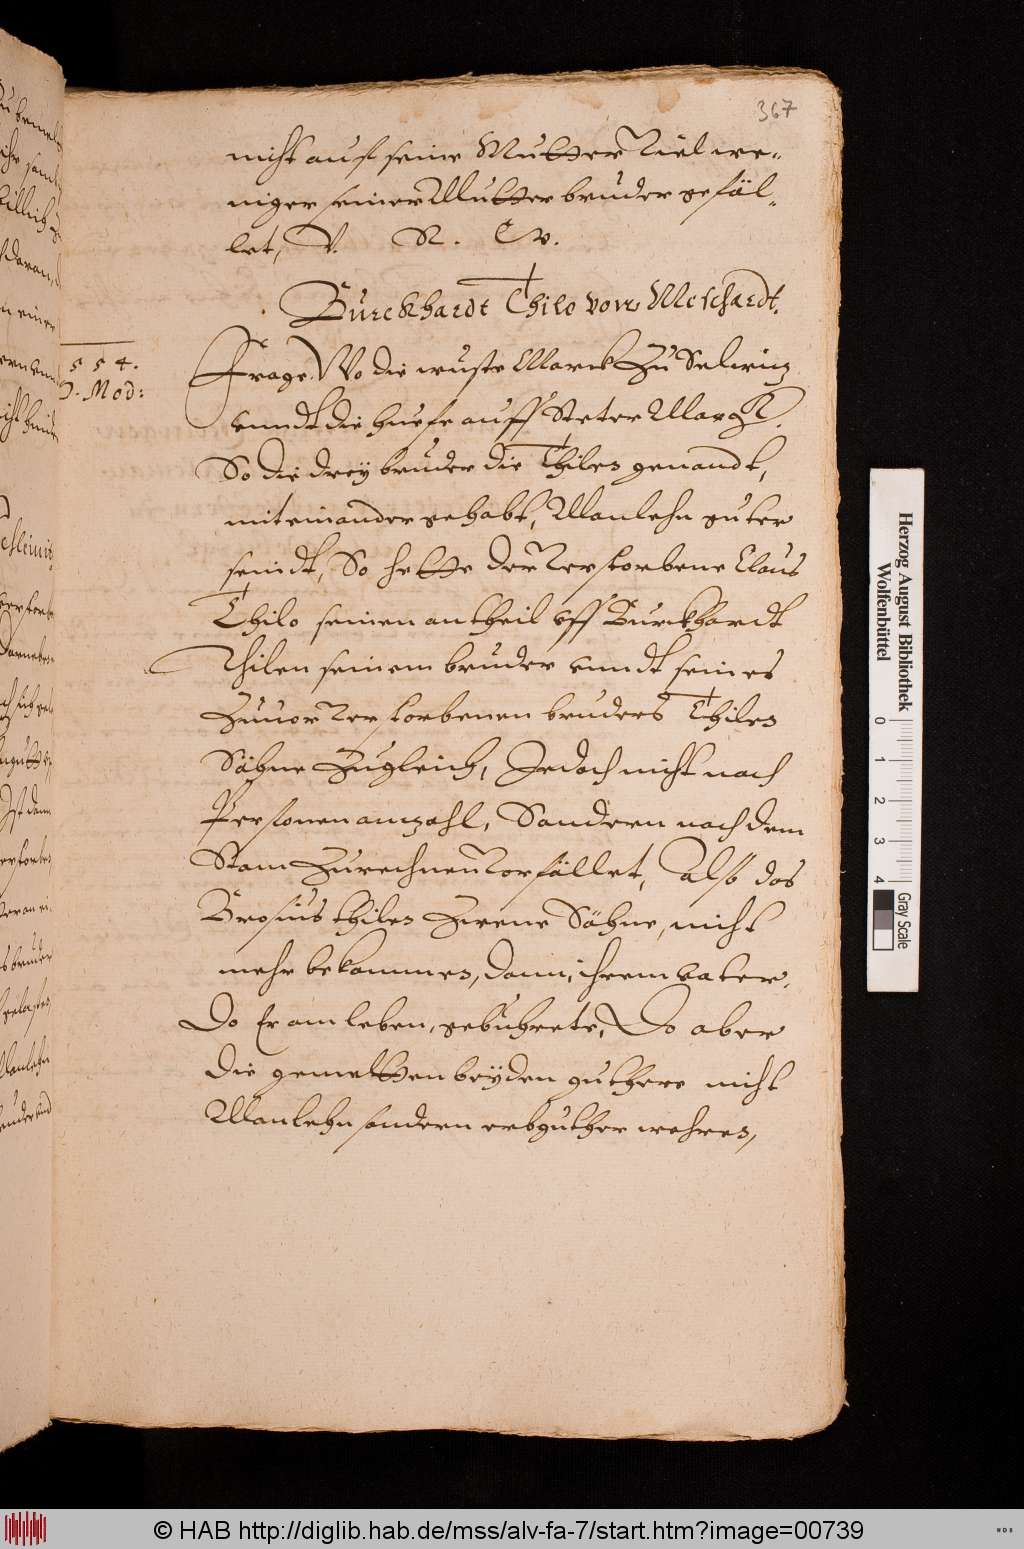 367
nicht auf seine Mutter viel we-
niger seiner Mutter bruder gefäl-
let, V. R. W.
Burckhardt Thilo von Meschardt.
554.
D. Mod:
Frage. Wo die wuste Marck zu Selwitz
vnndt die huefe auff Steter Marck.
So die dreÿ bruder die Thilen genandt,
miteinander gehabt, Manlehn guter
seindt, So hette der verstorbene Claus
Thilo seinen antheil vff Burckhardt
Thilen seinem bruder vnndt seines
Zuuor verstorbenen bruders Thilen
Söhne Zugleich, Jedoch nicht nach
Personen anzahl, Sondern nach dem
Stam Zurechnen vorfället, also das
Brosius thilen Zwene Söhne, nicht
mehr bekommen, dann ihrem vater,
Do Er am leben, gebuhrete, Do aber
die gemelten beÿden guthere nicht
Manlehn sondern erbguther wehren,
Herzog August Bibliothek
Wolfenbüttel
0 1 2 3 4
Gray Scale
© HAB http://diglib.hab.de/mss/alv-fa-7/start.htm?image=00739